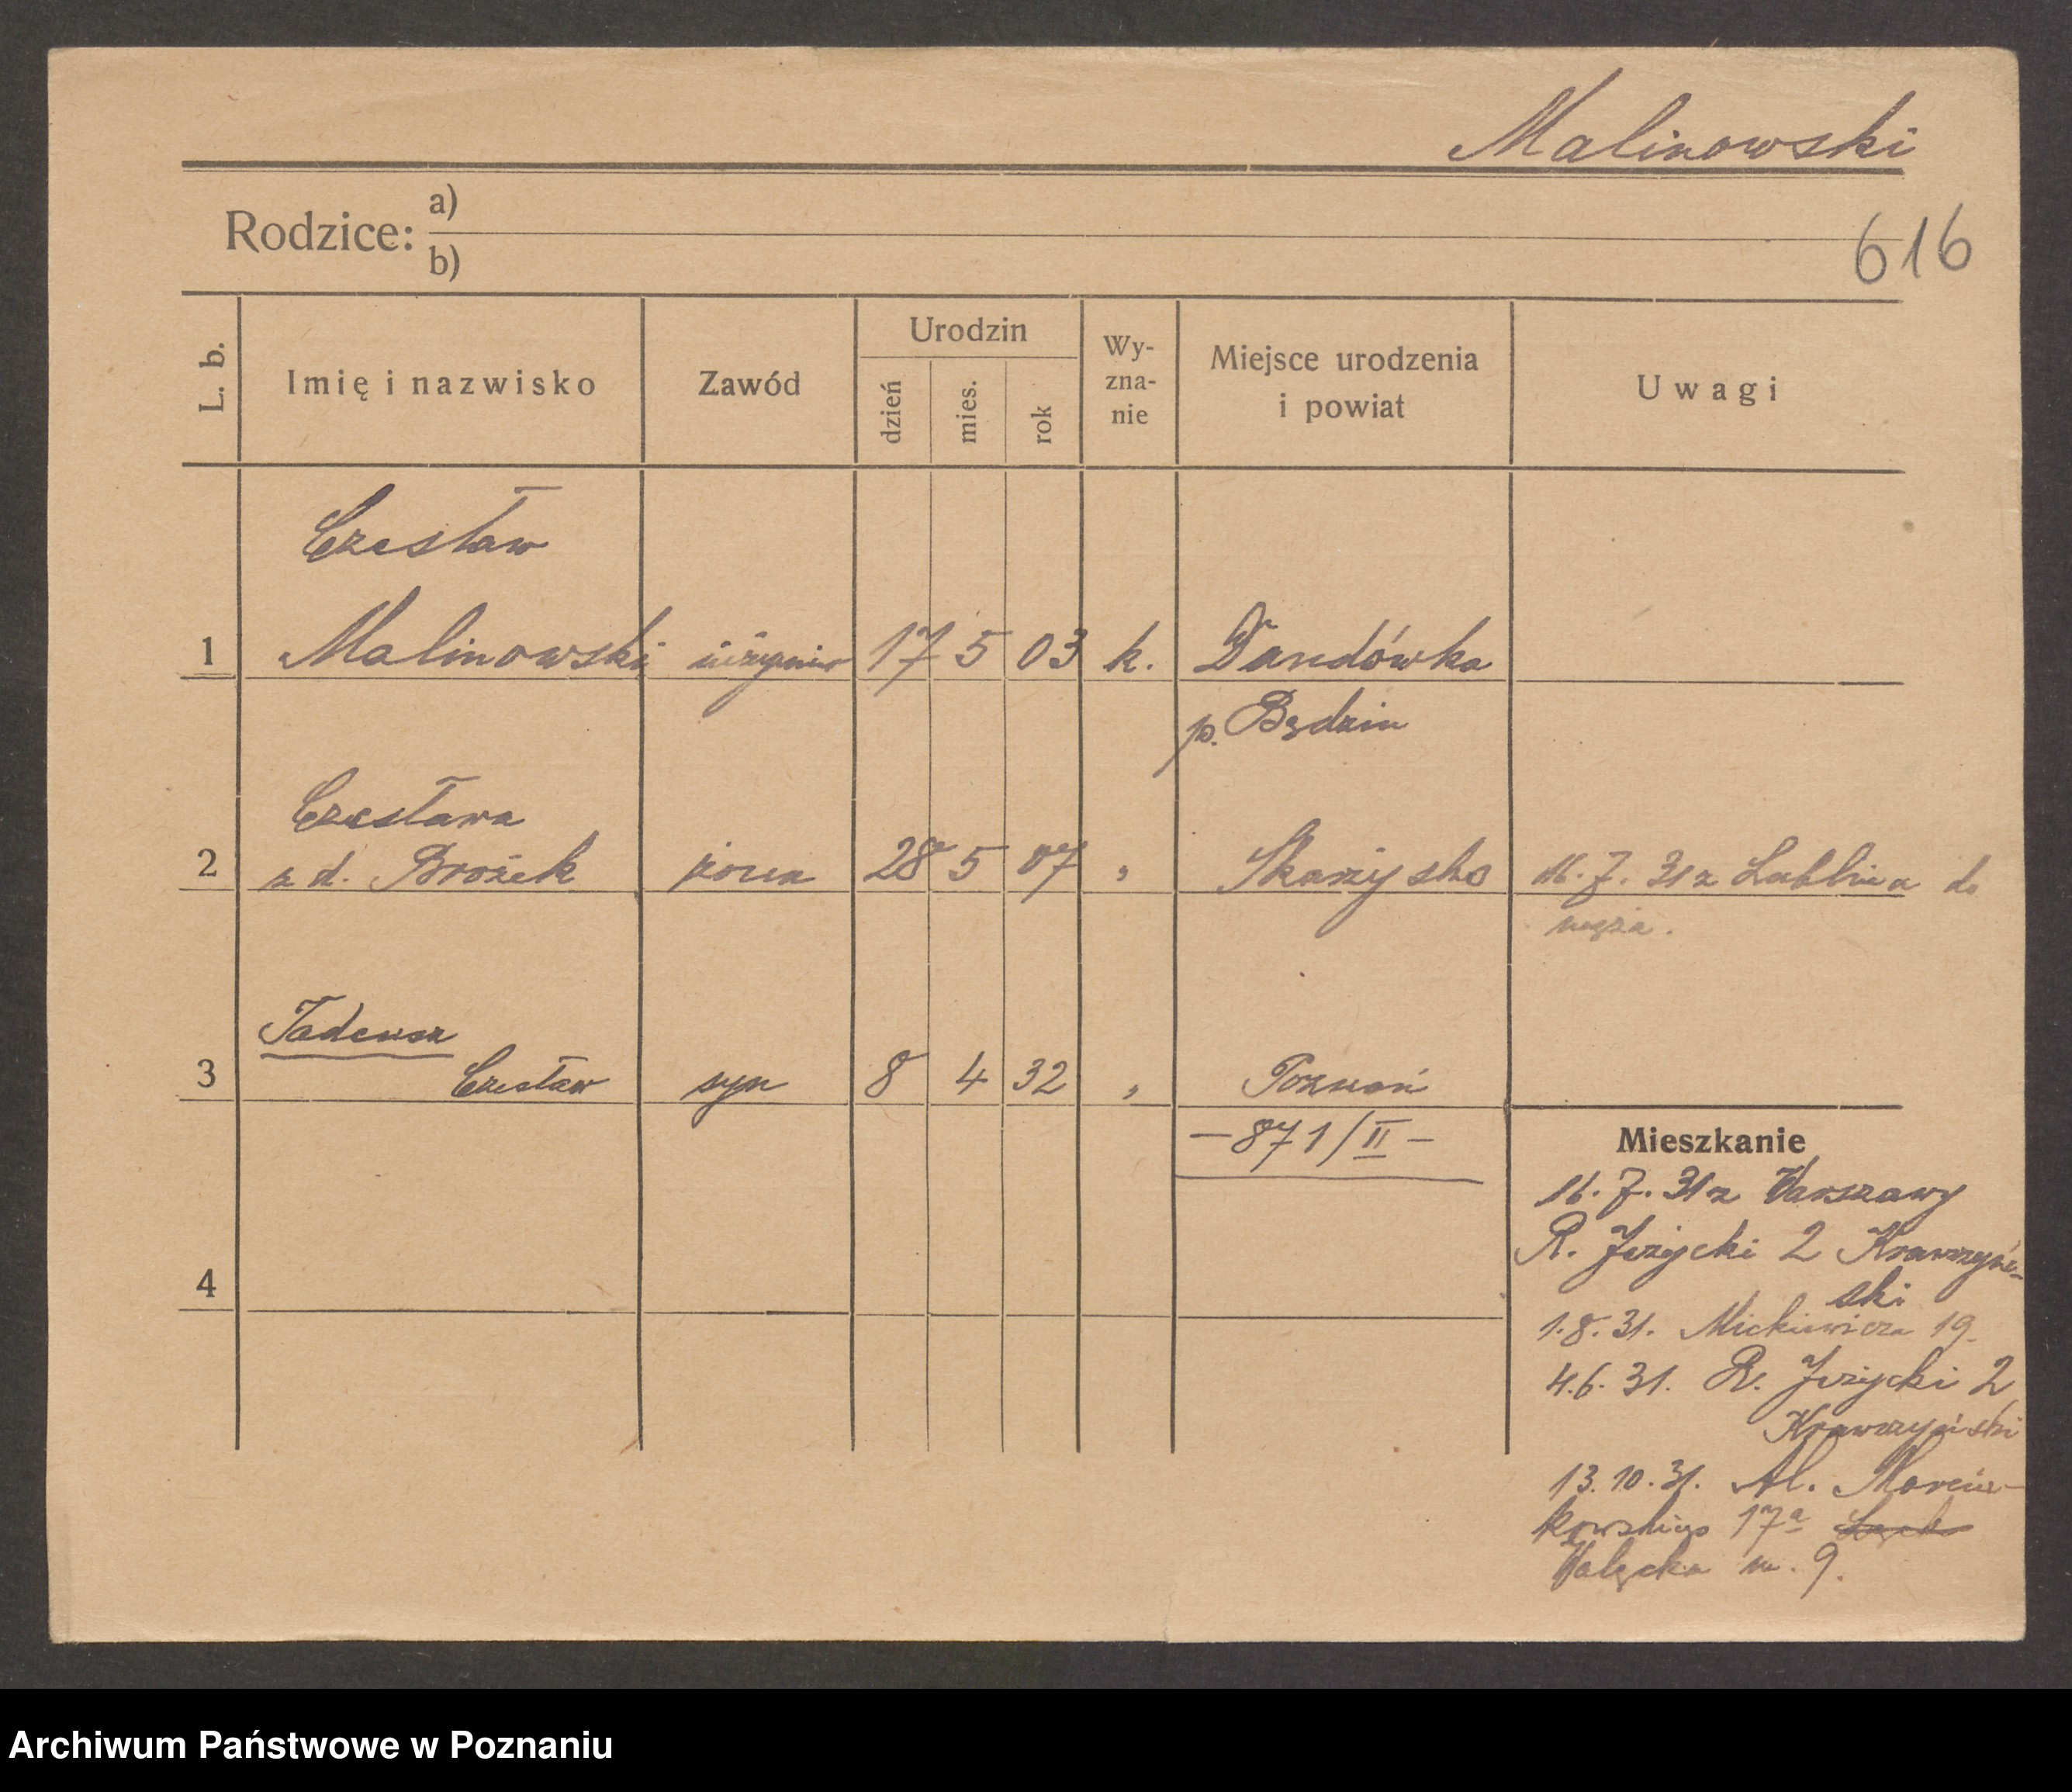 Malinowski
Rodzice: a)
b)
616
L. b.
Imię i nazwisko
Zawód
Urodzin
dzień
mies.
rok
Wy-
zna-
nie
Miejsce urodzenia
i powiat
Uwagi
Czesław
1 Malinowski inżynier 17 5 03 k. Dandówka
p. Będzin
Czesława
2 z d. Brożek żona 28 5 07 " Skarżysko 16.7.31 z Lublina do
męża.
Tadeusz
3 Czesław syn 8 4 32 " Poznań
– 871/II –
4
Mieszkanie
16.7.31 z Warszawy
R. Jeżycki 2 Krawczyń-
ski
1.8.31. Mickiewicza 19.
4.6.31. R. Jeżycki 2
Krawczyński
13.10.31. Al. Marcin-
kowskiego 17a
Wałęcka m. 9.
Archiwum Państwowe w Poznaniu